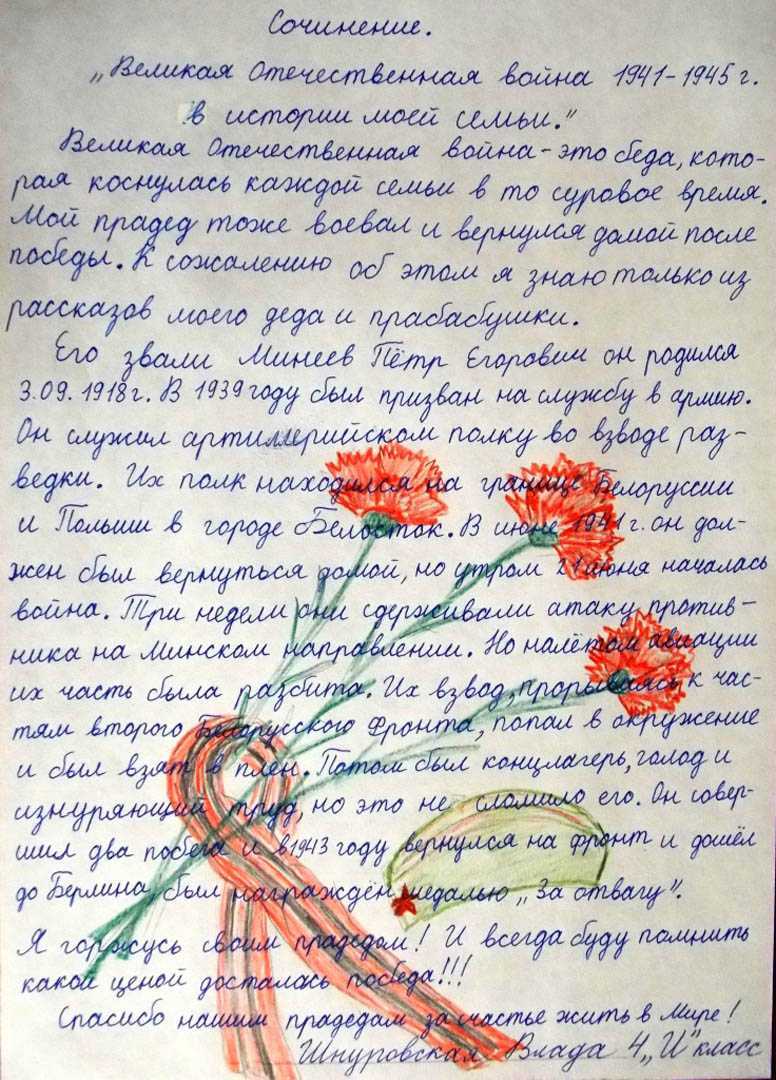 Сочинение.
„Великая Отечественная война 1941-1945 г.
в истории моей семьи."
Великая Отечественная война - это беда, кото-
рая коснулась каждой семьи в то суровое время.
Мой прадед тоже воевал и вернулся домой после
победы. К сожалению об этом я знаю только из
рассказов моего деда и прабабушки.
Его звали Минеев Пётр Егорович он родился
3.09.1918 г. В 1939 году был призван на службу в армию.
Он служил артиллерийском полку во взводе раз-
ведки. Их полк находился на границе Белоруссии
и Польши в городе Белосток. В июне 1941 г. он дол-
жен был вернуться домой, но утром 21 июня началась
война. Три недели они сдерживали атаку против-
ника на Минском направлении. Но налётом авиации
их часть была разбита. Их взвод, прорываясь к час-
тям второго Белорусского Фронта, попал в окружение
и был взят в плен. Потом был концлагерь, голод и
изнуряющий труд, но это не сломило его. Он совер-
шил два побега и в 1943 году вернулся на фронт и дошёл
до Берлина, был награждён медалью „За отвагу".
Я горжусь своим прадедом! И всегда буду помнить
какой ценой досталась победа!!!
Спасибо нашим прадедам за счастье жить в Мире!
Шнуровская Влада 4 „И" класс